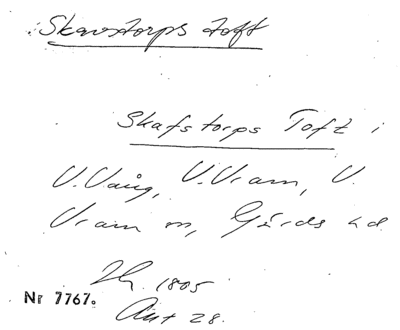 Skavstorps toft
Skafstorps Toft i
V. Vång, V. Vram, V.
Vram sn, Gärds hd
1805
Nr 7767.
Akt 28.